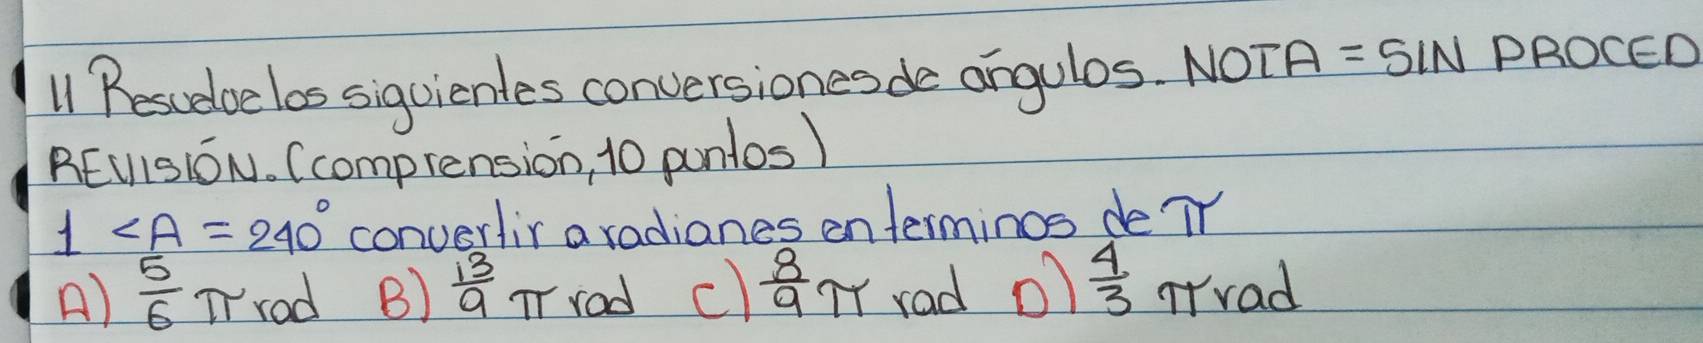 II Resuelve los siguientes conversiones de ángulos. NOTA = SIN PROCED
REVISIÓN. (comprensión, 10 puntos)
1 <A = 240° convertir a radianes en terminos de π
A) 5/6 π rad B) 13/9 π rad C) 8/9 π rad D) 4/3 π rad